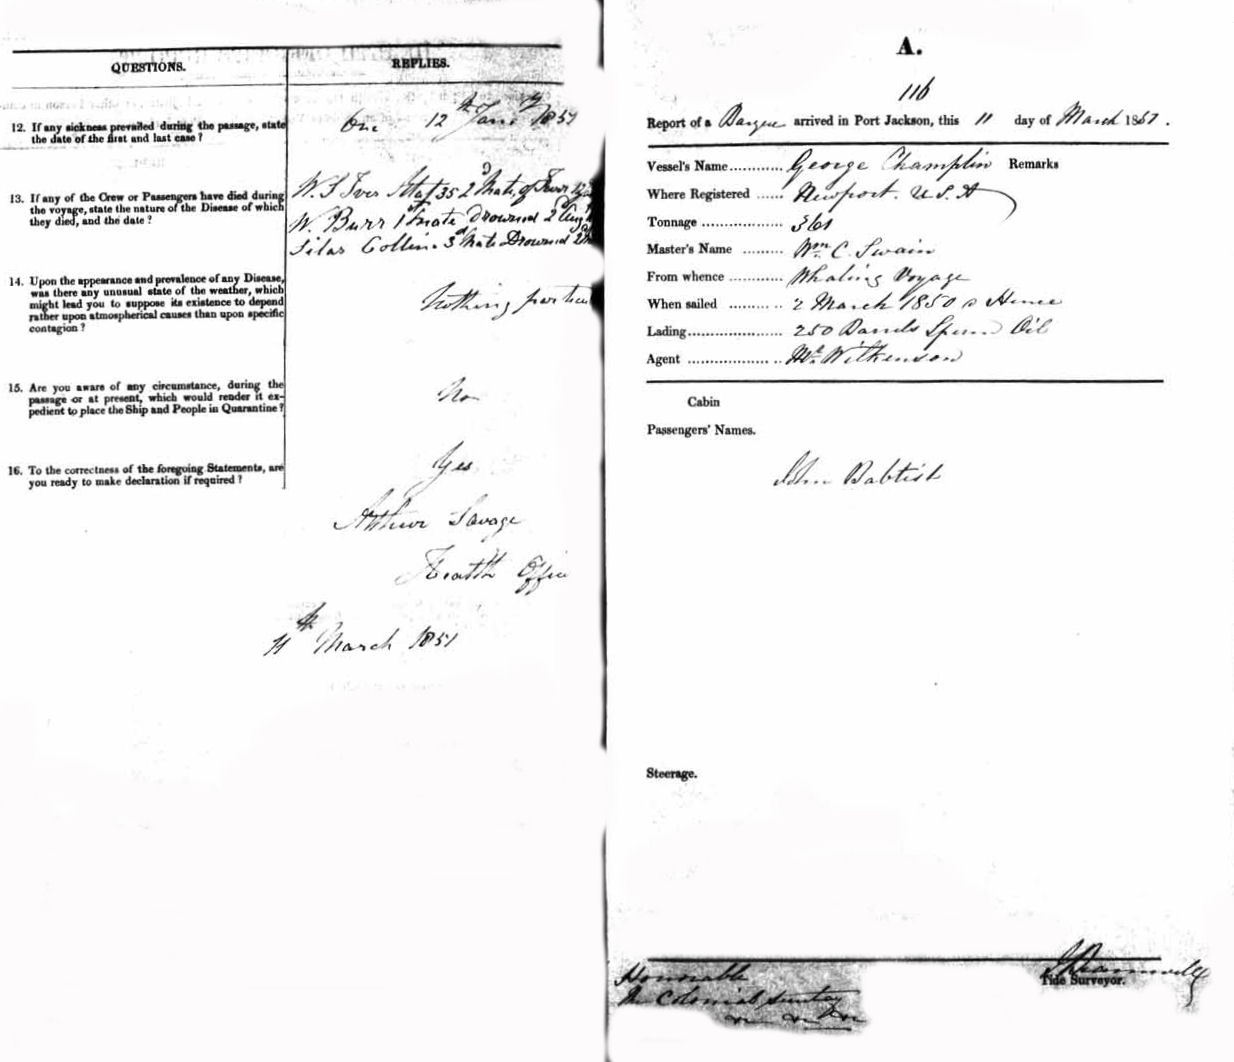 QUESTIONS.
REPLIES.
12. If any sickness prevailed during the passage, state
the date of the first and last case?
One 12th Jany 1851
13. If any of the Crew or Passengers have died during
the voyage, state the nature of the Disease of which
they died, and the date?
W. S. 35 2d Mate, of
W. Burr 1st Mate Drowned 2d Aug
Silas Collin 3d Mate Drowned
14. Upon the appearance and prevalence of any Disease,
was there any unusual state of the weather, which
might lead you to suppose its existence to depend
rather upon atmospherical causes than upon specific
contagion?
Nothing particu
15. Are you aware of any circumstance, during the
passage or at present, which would render it ex-
pedient to place the Ship and People in Quarantine?
No
16. To the correctness of the foregoing Statements, are
you ready to make declaration if required?
Yes
Arthur Savage
Health Office
11th March 1851
A.
116
Report of a Barque arrived in Port Jackson, this 11 day of March 1851.
Vessel's Name............ George Champlin Remarks
Where Registered ...... Newport. U.S.A
Tonnage .................. 361
Master's Name ......... Wm. C. Swain
From whence ............ Whaling Voyage
When sailed ............ 2 March 1850 Hence
Lading..................... 250 Barrels Sperm Oil
Agent ..................... Mr. Wilkenson
Cabin
Passengers' Names.
John Babtist
Steerage.
Honorable
The Colonial Secretary
Tide Surveyor.